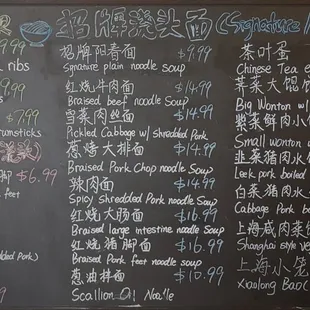 招牌浇头面 (Signature
9.99
ribs
9.99
$7.99
rumsticks
脚 $6.99
feet
dded Pork)
招牌阳春面 $9.99
Signature plain noodle soup
红烧牛肉面 $14.99
Braised beef noodle Soup
雪菜肉丝面 $14.99
Pickled Cabbage w/ shredded Pork
葱烤大排面 $14.99
Braised Pork Chop noodle Soup
辣肉面 $14.99
Spicy Shredded Pork noodle Soup
红烧大肠面 $16.99
Braised Large intestine noodle Soup
红烧猪脚面 $16.99
Braised Pork feet noodle Soup
葱油拌面 $10.99
Scallion Oil Noodle
茶叶蛋
Chinese Tea e
荠菜大馄饨
Big Wonton w
紫菜鲜肉小
Small wonton w
韭菜猪肉水
Leek pork boiled
白菜猪肉水
Cabbage Pork bo
上海咸肉菜饭
Shanghai style ve
上海小笼
Xiaolong Bao (